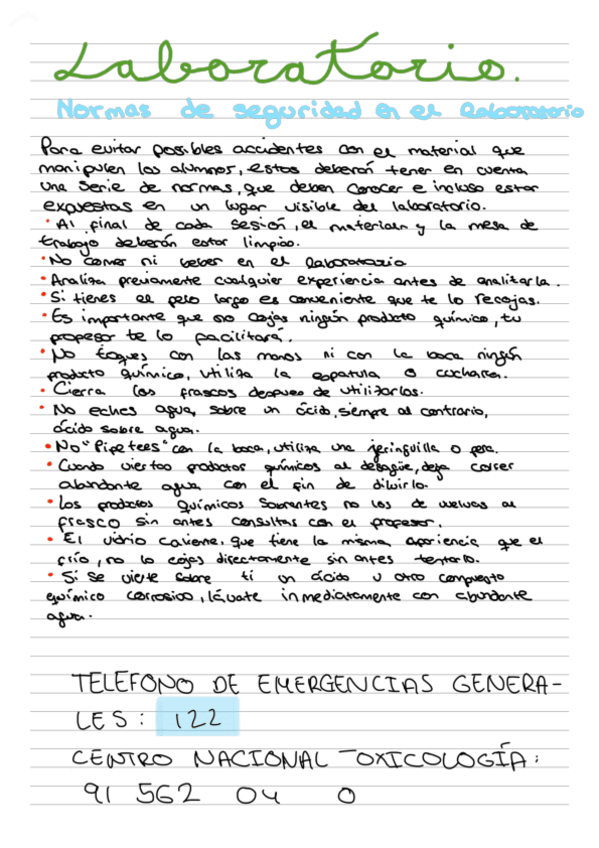 Laboratorio.
Normas de seguridad en el laboratorio
Para evitar posibles accidentes con el material que
manipulen los alumnos, estos deberán tener en cuenta
una serie de normas, que deben conocer e incluso estar
expuestas en un lugar visible del laboratorio.
• Al final de cada sesión, el materialn y la mesa de
trabajo deberán estar limpios.
• No comer ni beber en el laboratorio
• Analiza previamente cualquier experiencia antes de analitarla.
• Si tienes el pelo largo es conveniente que te lo recojas.
• Es importante que no cojas ningún producto químico, tu
profesor te lo facilitará.
• No toques con las manos ni con la boca ningún
producto químico, utiliza la espatula o cuchara.
• Cierra los frascos despues de utilizarlos.
• No eches agua, sobre un ácido, siempre al contrario,
ácido sobre agua.
• No "Pipetees" con la boca, utiliza una jeringuilla o pera.
• Cuando viertas productos químicos al desagüe, deja correr
abundante agua con el fin de diluirlo.
• Los productos químicos sobrentes no los de vuelvas al
frasco sin antes consultas con el profesor.
• El vidrio caliene, que tiene la misma apariencia que el
frío, no lo cojas directamente sin antes tentarlo.
• Si se vierte sobre ti un ácido u otro compuesto
químico corrosivo, lávate inmediatamente con abundante
agua.
TELEFONO DE EMERGENCIAS GENERA-
LES: 122
CENTRO NACIONAL TOXICOLOGÍA:
91 562 04 0